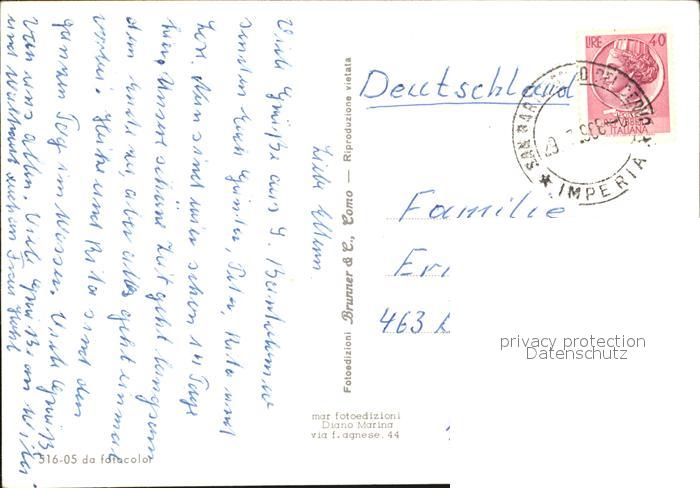 Liebe Eltern.
Viele Grüße aus S. Bartolomeo
senden euch Günter, Peter, Rita und
Jos. Nun sind wir schon 14 Tage
hier. Unsere schöne Zeit geht langsam
dem Ende zu, aber alles geht einmal
vorbei. Heike und Rita sind den
ganzen Tag im Wasser. Viele Grüße
von uns allen. Viele Grüße an Willi
und
516-05 da fotocolor
Fotoedizioni Brunner & C., Como — Riproduzione vietata
mar fotoedizioni
Diano Marina
via f. agnese. 44
Deutschland
LIRE 40
ITALIANA
SAN BARTOLOMEO DEL CERVO
IMPERIA
Familie
Eri
463
privacy protection
Datenschutz